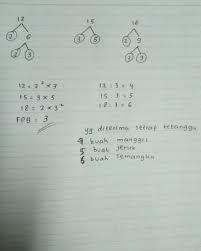 12 15 18
2 6 3 5 2 9
2 3 3 3
12 = 2² × 3 12 : 3 = 4
15 = 3 × 5 15 : 3 = 5
18 = 2 × 3² 18 : 3 = 6
FPB = 3
yg diterima setiap tetangga
4 buah manggis
5 buah jeruk
6 buah semangka